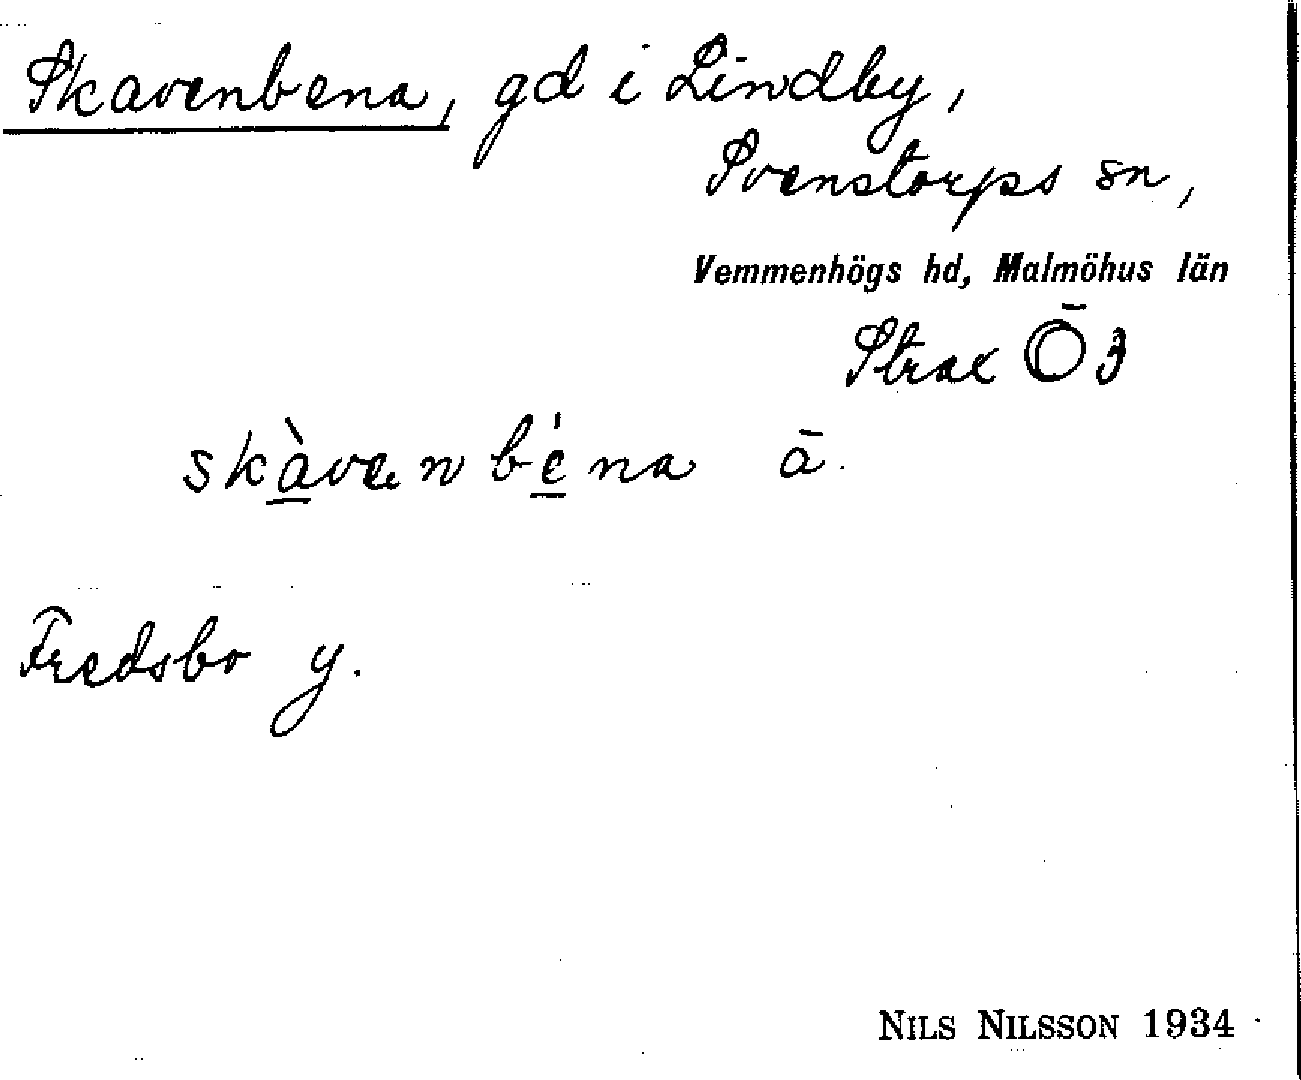 Skavenbena, gd i Lindby,
Svenstorps sn,
Vemmenhögs hd, Malmöhus län
Strax Ō 3
skàvenbéna ā.
Fredsbo y.
NILS NILSSON 1934